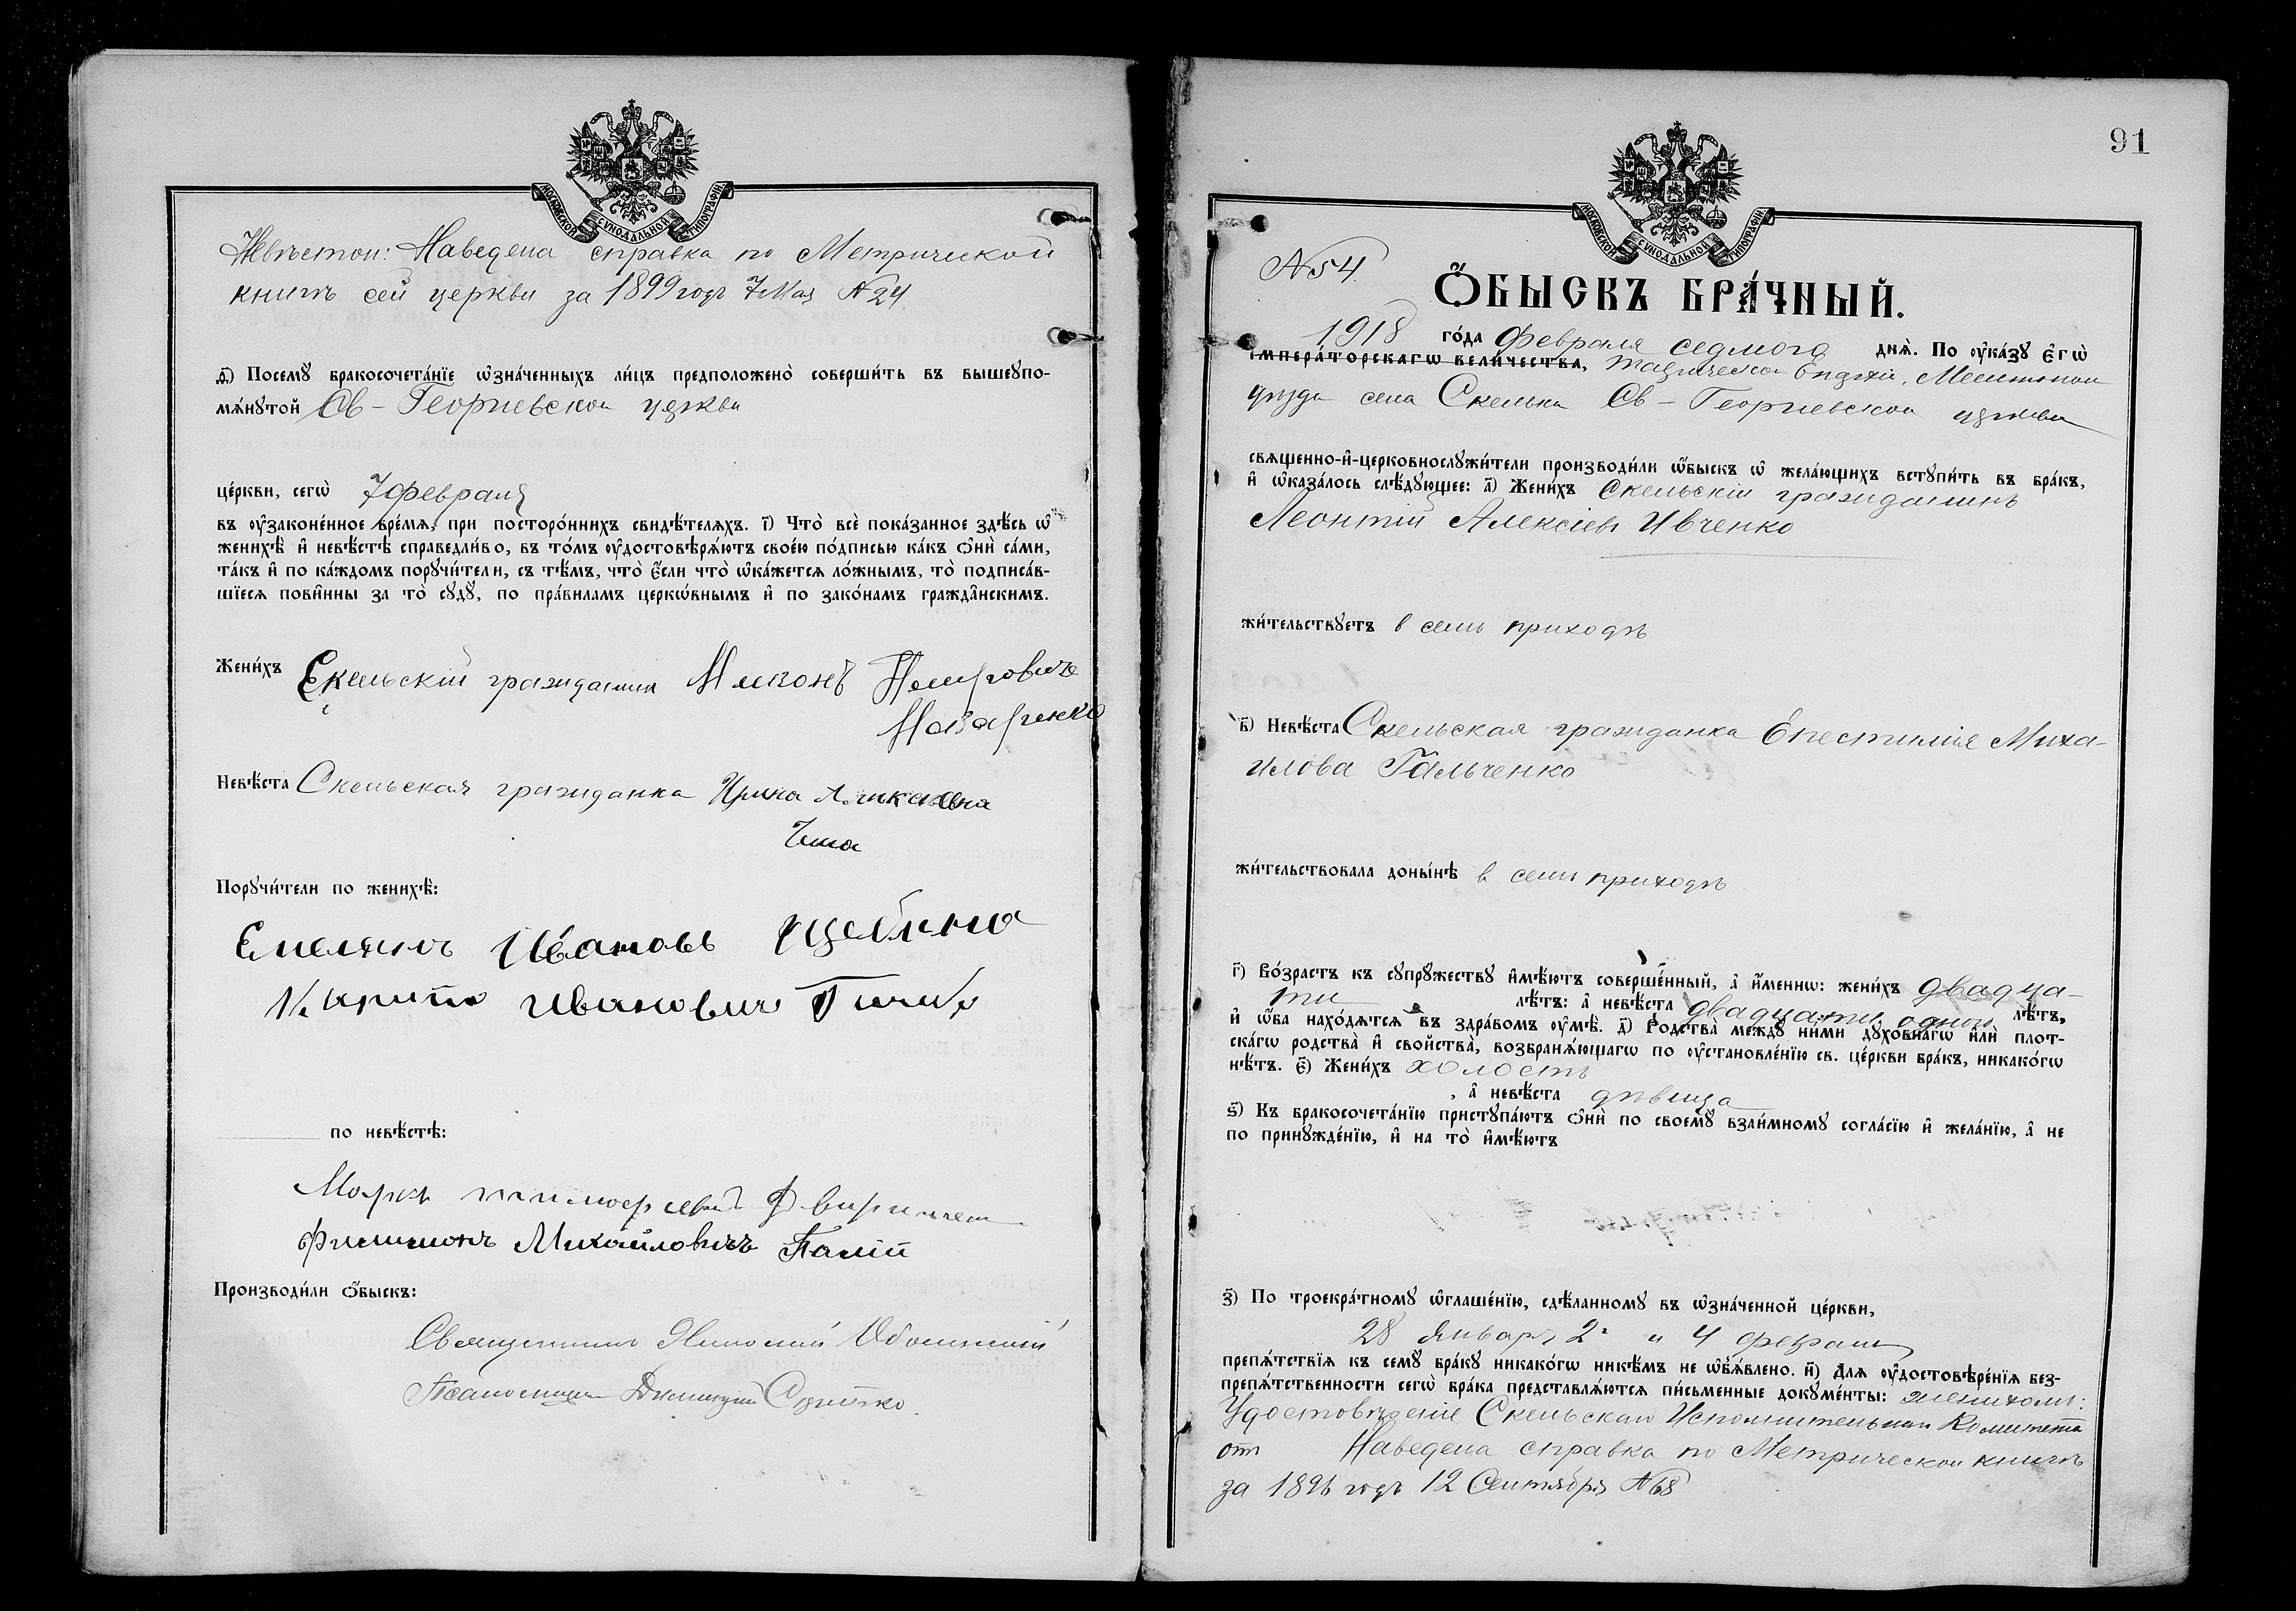 МОСКОВСКОЙ СѴНОДАЛЬНОЙ ТИПОГРАФІИ
Невѣстой: Наведена справка по Метрической
книгѣ сей церкви за 1899 годъ 7 Мая №24.
ѳ҃) Посемꙋ бракосочета́нїе ѡ҆зна́ченныхъ ли́цъ предположено̀ соверши́ть въ вышеꙋпо-
мѧ́нꙋтой Св-Георгіевской церкви
це́ркви, сегѡ̀ 7 февраля
въ ᲂу҆законе́нное вре́мѧ, при посторо́ннихъ свидѣ́телѧхъ. і҃) Что̀ всѐ пока́занное здѣ́сь ѡ҆
женихѣ̀ и҆ невѣ́стѣ справедли́во, въ то́мъ ᲂу҆достовѣрѧ́ютъ свое́ю по́дписью ка́къ ѻ҆нѝ са́ми,
та́къ и҆ по ка́ждомъ порꙋчи́тели, съ тѣ́мъ, что̀ є҆́сли что̀ ѡ҆ка́жетсѧ ло́жнымъ, то̀ подписа́в-
шїесѧ пови́нны за то̀ сꙋдꙋ̀, по пра́виламъ церко́внымъ и҆ по зако́намъ гражда́нскимъ.
Жени́хъ Скельскій гражданин Миронъ Петровичъ
Назаренко
Невѣ́ста Скельская гражданка Ирина
Порꙋчи́тели по женихѣ̀:
Емелянъ Ивановъ Щеблина
Иванович
по невѣ́стѣ:
Марко
Филимонъ Михайловичъ Палій
Производи́ли ѻ҆́быскъ:
Священникъ Николай
Псаломщик Димитрій
91
МОСКОВСКОЙ СѴНОДАЛЬНОЙ ТИПОГРАФІИ
№54.
Ѻ҆́БЫСКЪ БРА́ЧНЫЙ.
1918 го́да февраля седмого днѧ̀. По ᲂу҆ка́зꙋ є҆гѡ̀
і҆мпера́торскагѡ вели́чества, Таврической Епархіи, Мелитопол
уѣзда села Скельки Св-Георгіевской церкви
свѧщенно-и҆-церковнослꙋжи́тели производи́ли ѡ҆́быскъ ѡ҆ жела́ющихъ встꙋпи́ть въ бра́къ,
и҆ ѡ҆каза́лось слѣ́дꙋющее: а҃) Жени́хъ Скельскій гражданинъ
Леонтій Алексіевъ Ивченко
жи́тельствꙋетъ в семъ приходѣ
в҃) Невѣ́ста Скельская гражданка Епестимія Миха-
илова Гальченко
жи́тельствовала доны́нѣ в семъ приходѣ
г҃) Во́зрастъ къ сꙋпрꙋ́жествꙋ и҆мѣ́ютъ соверше́нный, а҆ и҆́менно: жени́хъ двадца-
ти лѣ́тъ: а҆ невѣ́ста двадцати одного лѣ́тъ,
и҆ ѡ҆́ба нахо́дѧтсѧ въ здра́вомъ ᲂу҆мѣ̀. д҃) Родства̀ междꙋ̀ ни́ми дꙋхо́внагѡ и҆лѝ плот-
ска́гѡ родства̀ и҆ сво́йства̀, возбранѧ́ющагѡ по ᲂу҆становле́нїю св. це́ркви бра́къ, никако́гѡ
нѣ́тъ. є҃) Жени́хъ холостъ
, а҆ невѣ́ста дѣвица
ѕ҃) Къ бракосочета́нїю пристꙋпа́ютъ ѻ҆нѝ по своемꙋ̀ взаи́мномꙋ согла́сїю и҆ жела́нїю, а҆ не
по принꙋжде́нїю, и҆ на то̀ и҆мѣ́ютъ
з҃) По троекра́тномꙋ ѡ҆глаше́нїю, сдѣ́ланномꙋ въ ѡ҆зна́ченной це́ркви,
28 Января, 2го и 4 февраля
препѧ́тствїѧ къ семꙋ̀ бра́кꙋ никако́гѡ никѣ́мъ не ѡ҆б̾ѧ́влено. и҃) Длѧ ᲂу҆достовѣре́нїѧ без-
препѧ́тственности сегѡ̀ бра́ка представлѧ́ютсѧ пи́сьменные докꙋме́нты: женихомъ:
Удостовѣреніе Скельскаго Исполнительнаго Комитета
отъ Наведена справка по Метрической книгѣ
за 1896 годъ 12 Сентября №68